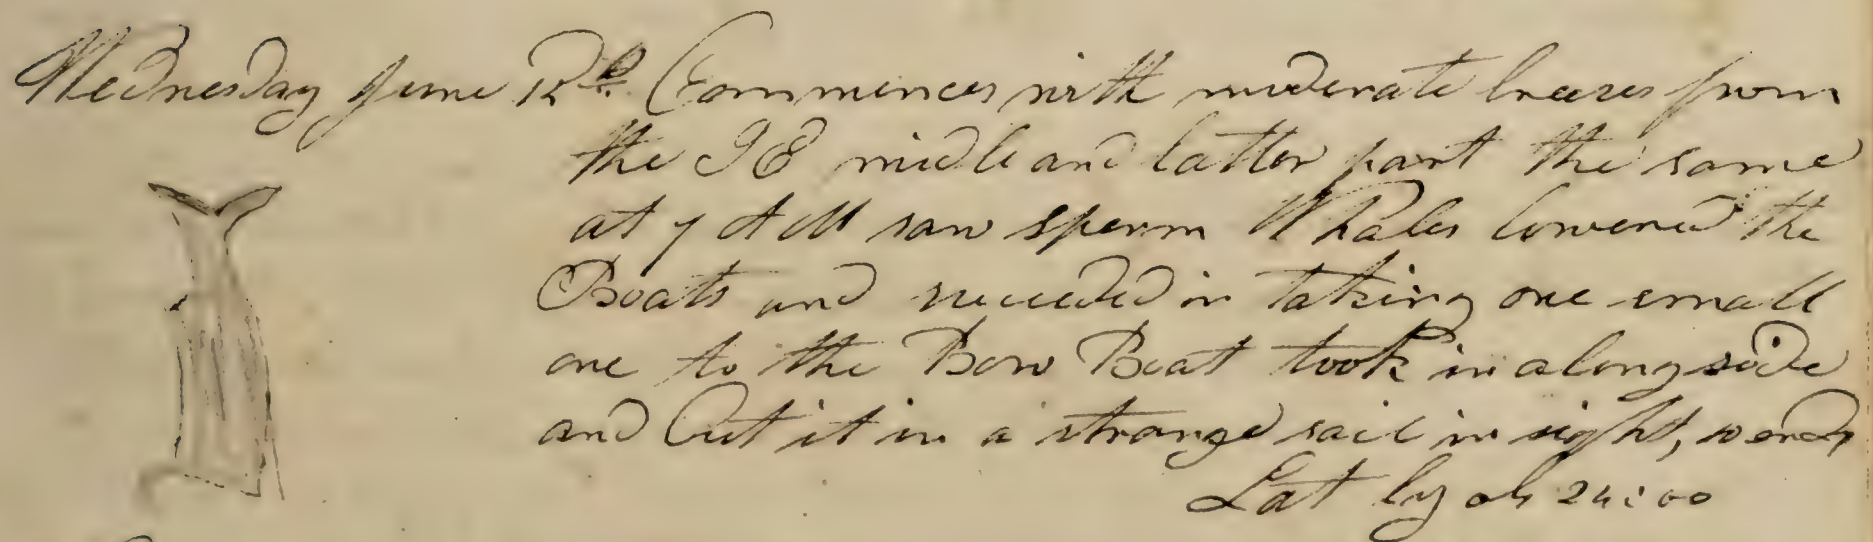 Wednesday June 12th Commences with moderate breezes from
the SE midle and latter part the same
at 7 AM saw sperm Whales lowered the
Boats and succeeded in taking one small
one to the Bow Boat took in alongside
and Cut it in a strange sail in sight, so ends
Lat by ob 24:00